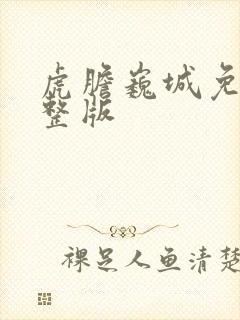 虎膽巍城免
整版
裸足人鱼清楚